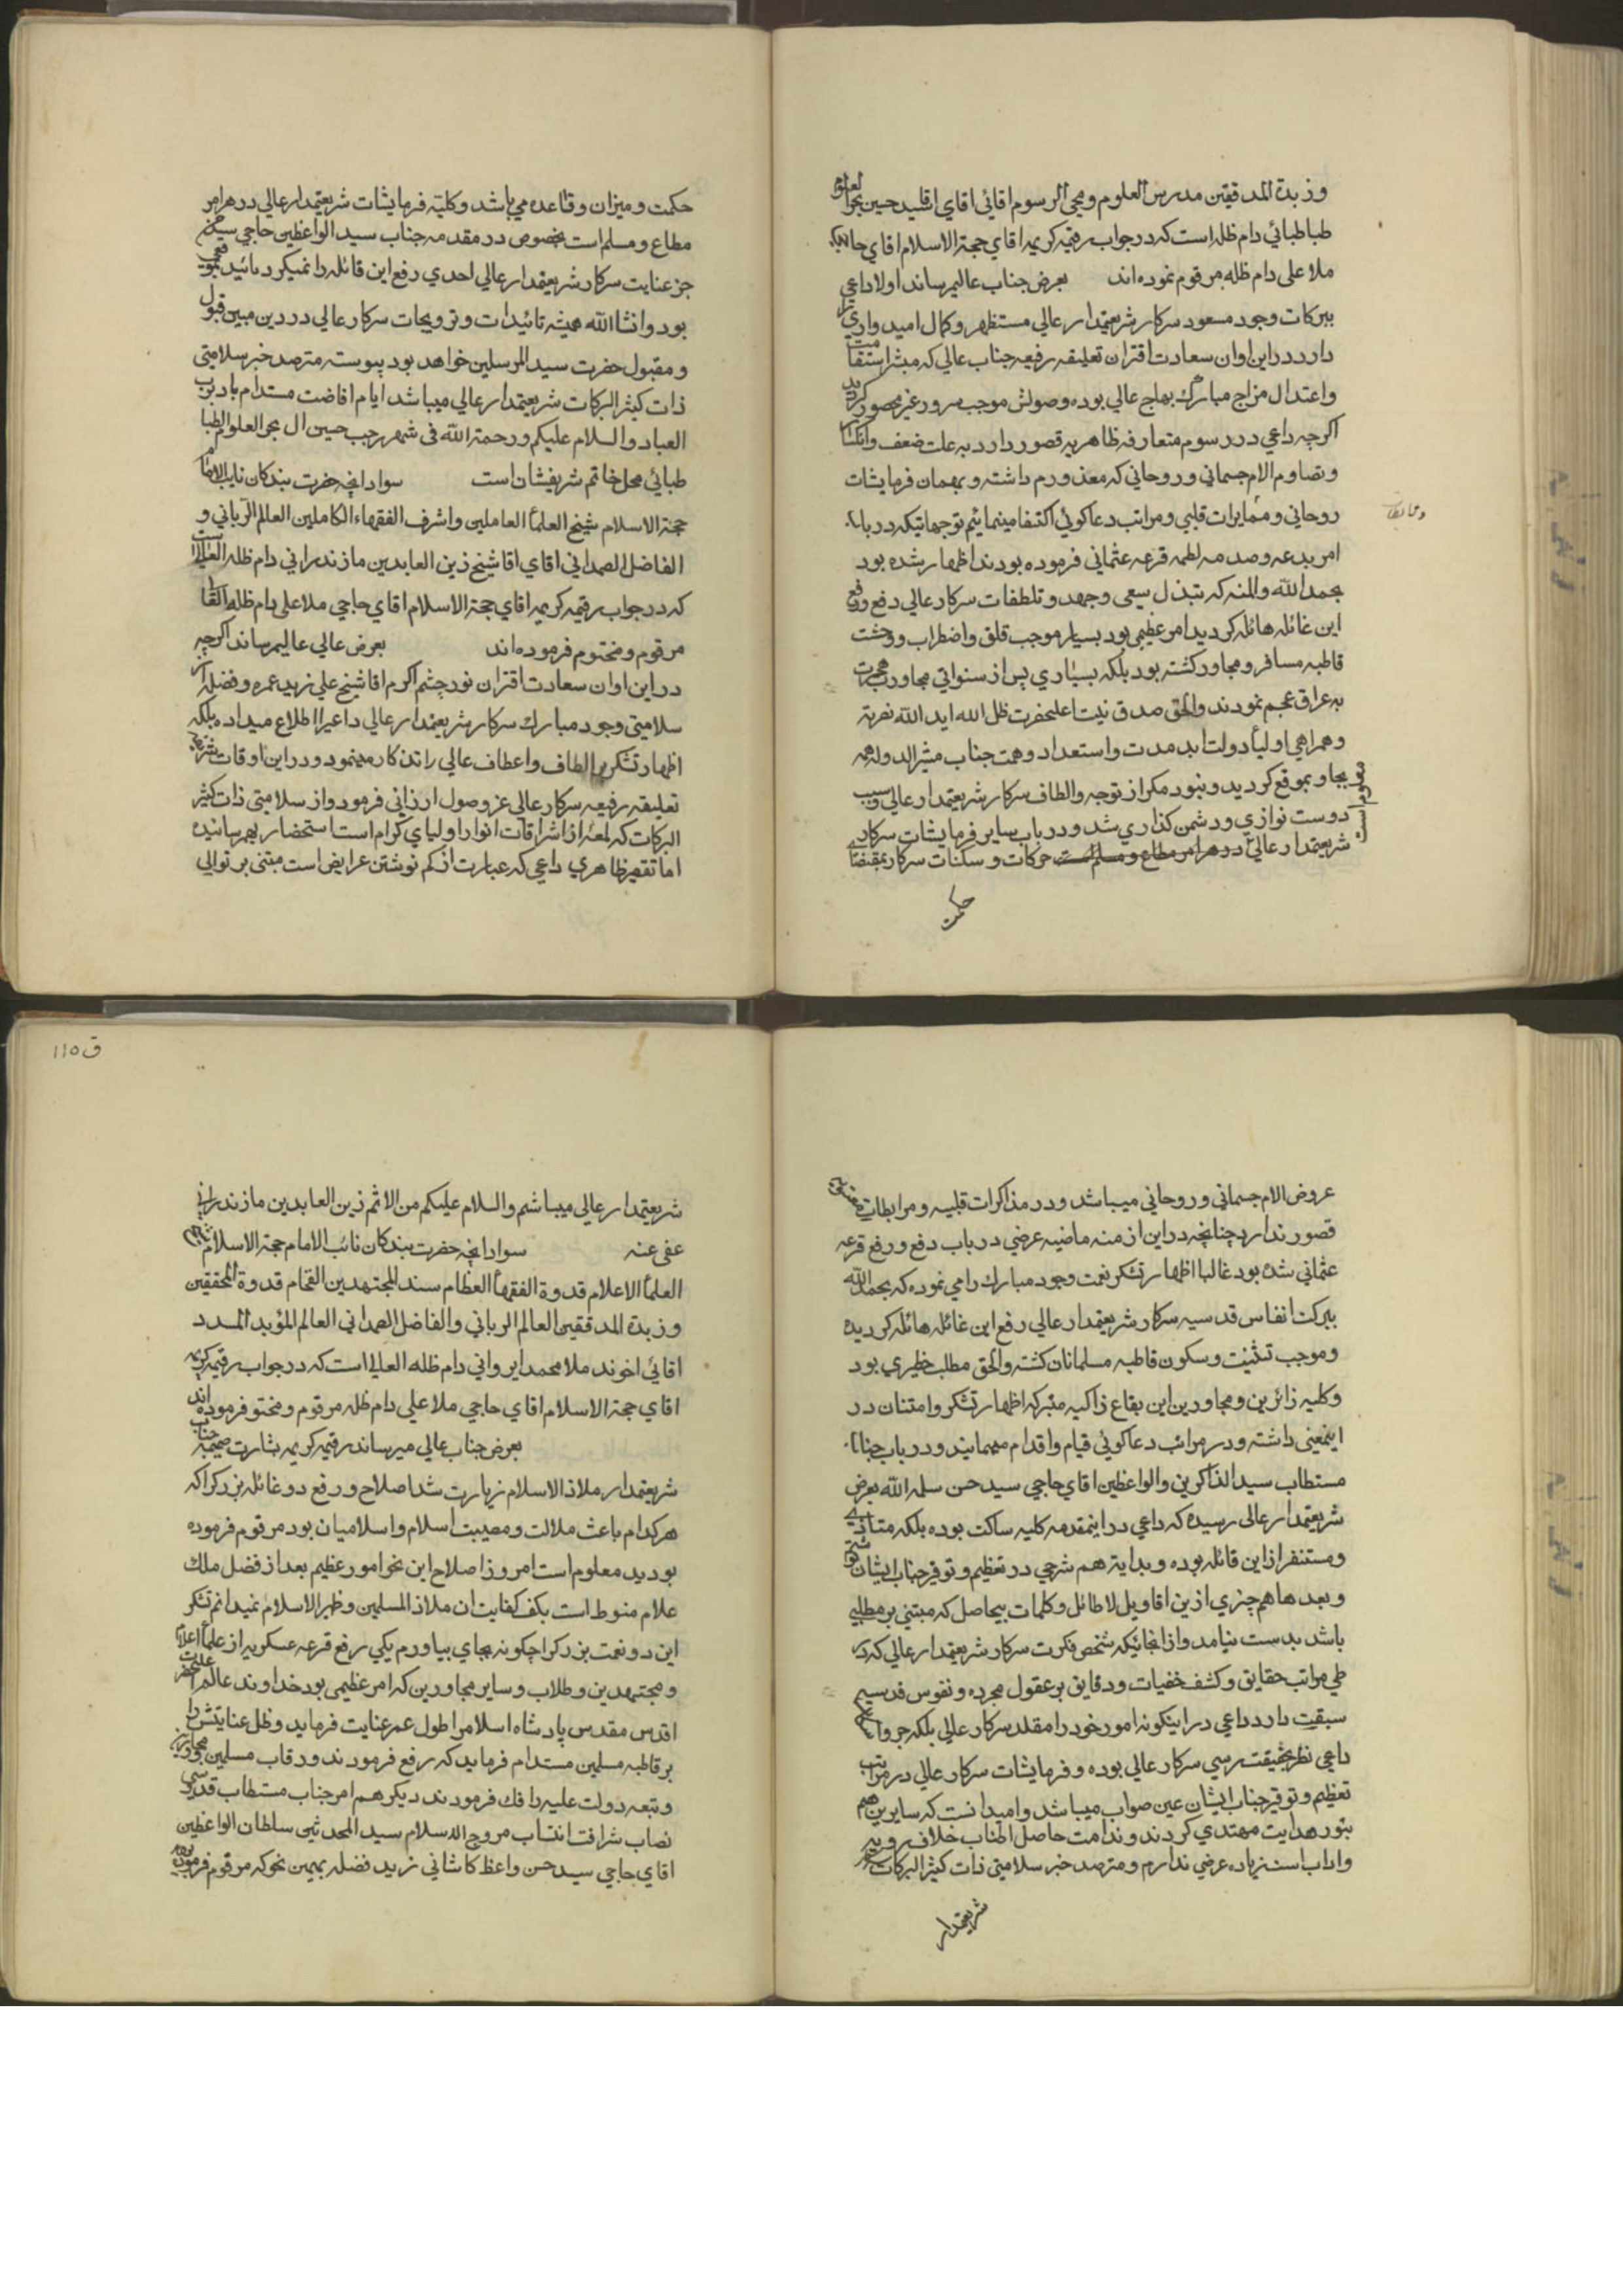 وزبدة المدققین مدرس العلوم و محی الرسوم اقائی اقای اقا سید حسین بحرالعلوم
طباطبائی دام ظله است که در جواب رقیمه کریمه اقای حجة الاسلام اقای حاجی
ملا علی دام ظله مرقوم نموده اند بعرض جناب عالی میرساند اولا داعی
ببرکات وجود مسعود سرکار شریعتمدار عالی مستظهر و کمال امیدواری را
دارد در این اوان سعادت اقتران تعلیقه رفیعه جناب عالی که مبشر استقامت
و اعتدال مزاج مبارک بهاج عالی بوده وصولش موجب سرور غیر محصور کردید
اکرچه داعی در رسوم متعارفه ظاهریه قصور دارد به علت ضعف و انکسار
و تصاوم الام جسمانی و روحانی که معذورم داشته و بهمان فرمایشات
روحانی و مخابرات قلبی و مراتب دعاکوئی اکتفا مینمائیم توجهاتیکه در باب
امر بدعه و صدمه لطمه قرعه عثمانی فرموده بودند اظهار شده بود
بحمد الله والمنه که بتبذل سعی و جهد و تلطفات سرکار عالی دفع و رفع
این غائله هائله کردید امر عظیمی بود بسیار موجب قلق و اضطراب و وحشت
قاطبه مسافر و مجاور کشته بود بلکه بسیاری پس از سنواتی مجاورت هجرت
به عراق عجم نمودند والحق صدق نیت اعلیحضرت ظل الله اید الله نصرته
و همراهی اولیأ دولت ابد مدت و استعداد و همت جناب مشیر الدوله همه
بجا و بموقع کردید و نبود مکر از توجه و الطاف سرکار شریعتمدار عالی و سبب
دوست نوازی و دشمن کذاری شد و در باب سایر فرمایشات سرکار
شریعتمدار عالی در هر امر مطاع و مسلم است حرکات و سکنات سرکار بمقتضای
معلوم است
حکمت
حکمت و میزان و قاعده می باشد و کلیة فرمایشات شریعتمدار عالی در هر امر
مطاع و مسلم است بخصوص در مقدمه جناب سید الواعظین حاجی سید حسن
جز عنایت سرکار شریعتمدار عالی احدی رفع این قائله را نمیکرد تائید غیبی
بود و انشاالله همیشه تائیدات و ترویجات سرکار عالی در دین مبین قبول
و مقبول حضرت سید المرسلین خواهد بود پیوسته مترصد خبر سلامتی
ذات کثیر البرکات شریعتمدار عالی میباشد ایام افاضت مستدام باد برب
العباد والسلام علیکم و رحمة الله فی شهر رجب حسین ال بحر العلوم الطبا
طبائی محل خاتم شریفشان است سواد انچه حضرت بندکان نایب الامام
حجة الاسلام شیخ العلمأ العاملین و اشرف الفقهاء الکاملین العالم الربانی و
الفاضل الصمدانی اقای اقا شیخ زین العابدین مازندرانی دام ظله العالی است
که در جواب رقیمه کریمه اقای حجة الاسلام اقای حاجی ملا علی دام ظله
مرقوم و مختوم فرموده اند بعرض عالی عالی میرساند اکرچه
در این اوان سعادت اقتران نور چشم اکرم اقا شیخ علی زید عمره و فضله از
سلامتی وجود مبارک سرکار شریعتمدار عالی داعی را اطلاع میداده بلکه
اظهار تشکر بر الطاف و اعطاف عالی را تذکار مینمود و در این اوقات
تعلیقه رفیعه سرکار عالی عز وصول ارزانی فرمود و از سلامتی ذات کثیر
البرکات که لمعهٔ از اشراقات انوار اولیای کرام است استحضار بهم رسانیده
اما تقصیر ظاهری داعی که عبارت از کم نوشتن عرایض است مبتنی بر توالی
ق ۱۱۵
عروض الام جسمانی و روحانی میباشد و در مذاکرات قلبیه و مرابطات
قصور ندارد چنانچه در این ازمنه ماضیه عرضی در باب دفع و رفع قرعه
عثمانی شده بود غالبا اظهار تشکر نعمت وجود مبارک را می نموده که بحمد الله
ببرکت انفاس قدسیه سرکار شریعتمدار عالی رفع این غائله هائله کردیده
و موجب تثبیت و سکون قاطبه مسلمانان کشته والحق مطلب خطیری بود
و کلیه زائرین و مجاورین این بقاع زاکیه متبرکه اظهار تشکر و امتنان در
اینمعنی داشته و در مراتب دعاکوئی قیام و اقدام مینمایند و در باب جناب
مستطاب سید الذاکرین والواعظین اقای حاجی سید حسن سلمه الله بعرض
شریعتمدار عالی رسیده که داعی در اینمقدمه کلیه ساکت بوده بلکه متاذی
و مستنفر از این قائله بوده و بدایة هم شرحی در تعظیم و توقیر جناب ایشان نوشتم
و بعدها هم چیزی از این اقاویل لاطائل و کلمات بیحاصل که مبتنی بر مطلبی
باشد بدست نیامد و از انجائیکه شخص فکرت سرکار شریعتمدار عالی که در
طی مراتب حقایق و کشف خفیات و دقایق بر عقول مجرده و نفوس قدسیه
سبقت دارد داعی در اینکونه امور خود را مقلد سرکار عالی بلکه
داعی نظر بحقیقت رسی سرکار عالی بوده و فرمایشات سرکار عالی در مراتب
تعظیم و توقیر جناب ایشان عین صواب میباشد و امید انست که سایرین هم
بنور هدایت مهتدی کردند و ندامت حاصل خلاف رویه
و اداب است زیاده عرضی ندارم و مترصد خبر سلامتی ذات کثیر البرکات
شریعتمدار
شریعتمدار عالی میباشم والسلام علیکم من الاثم زین العابدین مازندرانی
عفی عنه سواد انچه حضرت بندکان نائب الامام حجة الاسلام
العلمأ الاعلام قدوة الفقهأ العظام سند المجتهدین الفخام قدوة المحققین
و زبدة المدققین العالم الربانی والفاضل الصمدانی العالم المؤید المسدد
اقائی اخوند ملا محمد ایروانی دام ظله العالی است که در جواب رقیمه کریمه
اقای حجة الاسلام اقای حاجی ملا علی دام ظله مرقوم و مختوم فرموده اند
بعرض جناب عالی میرساند رقیمه کریمه بشارت ضمیمه جناب
شریعتمدار ملاذ الاسلام زیارت شد اصلاح و رفع دو غائله بزرک را که
هرکدام باعث ملالت و مصیبت اسلام و اسلامیان بود مرقوم فرموده
بودید معلوم است امروز اصلاح این نحو امور عظیم بعد از فضل ملک
علام منوط است بکف کفایت ان ملاذ المسلمین و ظهیر الاسلام نمیدانم تشکر
این دو نعمت بزرک را چکونه بجای بیاورم یکی رفع قرعه عسکریه از علمأ اعلام
و مجتهدین و طلاب و سایر مجاورین که امر عظیمی بود خداوند عالم اعلیحضرت
اقدس مقدس پادشاه اسلام را طول عمر عنایت فرماید و ظل عنایتش را
بر قاطبه مسلمین مستدام فرماید که رفع فرمودند و رقاب مسلمین مجاورین
و تبعه دولت علیه را فک فرمودند دیکر هم امر جناب مستطاب قدسی
نصاب شرافت انتساب مروج الاسلام سید المحدثین سلطان الواعظین
اقای حاجی سید حسن واعظ کاشانی زید فضله بهمین نحو که مرقوم فرموده